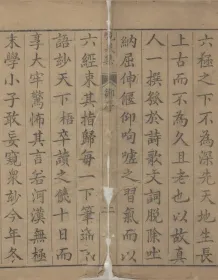 六極之下不為深先天地生長
上古而不為久且老也以故真
人一撰發於詩歌文詞脫除㘴
納屈伸偃仰响噓之習氣而以
六經東其指歸每一下筆為
語妙天下極卒讀之饑十日而
享大牢驚怖其言若河漢無極
末學小子敢妄窺衆妙今年冬